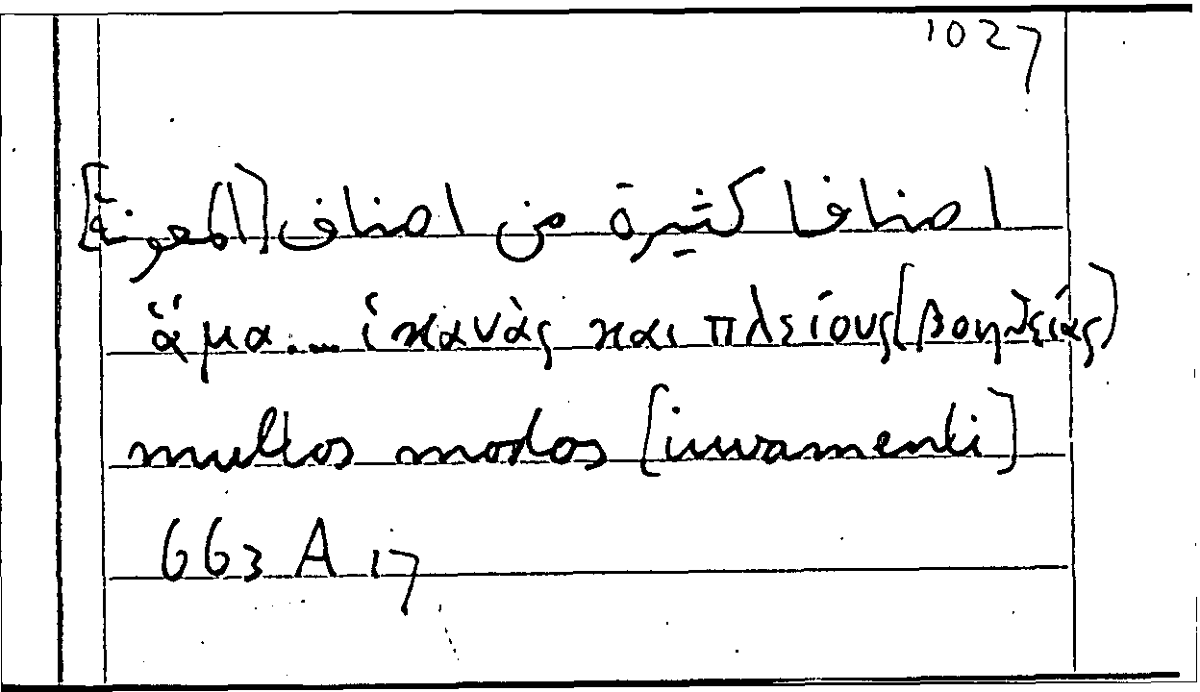 1027
اصنافا كثيرة من اصناف [المعونة]
ἅμα.... ἱκανὰς και πλείους (βοηθείας)
multos modos [iuvamenti]
663 A 17